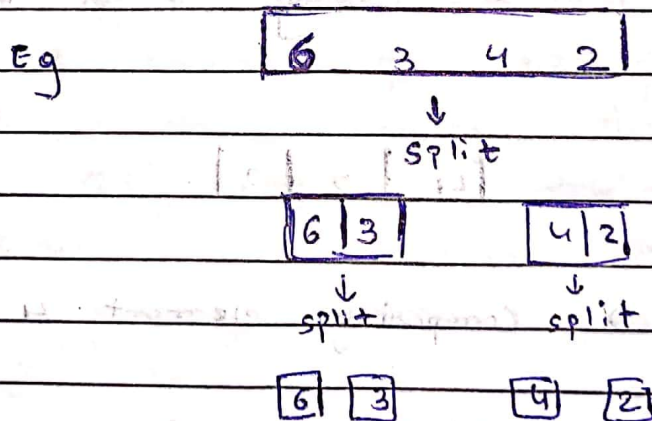 Eg 6 3 4 2
split
6 3 4 2
split split
6 3 4 2